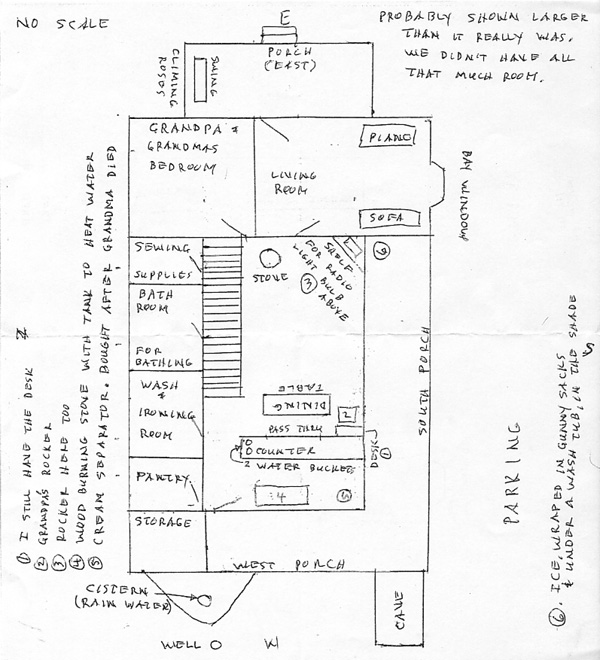 NO SCALE
E
PROBABLY SHOWN LARGER
THAN IT REALLY WAS.
WE DIDN'T HAVE ALL
THAT MUCH ROOM.
PORCH
(EAST)
SWING
CLIMING
ROSOS
GRANDPA &
GRANDMAS
BEDROOM
LIVING
ROOM
PIANO
SOFA
BAY WINDOW
SEWING
SUPPLIES
STOVE
SHELF
FOR RADIO
LIGHT BULB
ABOVE
3
6
BATH
ROOM
FOR
BATHING
WASH
&
IRONING
ROOM
DINING
TABLE
2
PASS THRU
DESK
1
COUNTER
2 WATER BUCKETS
4
5
PANTRY
STORAGE
SOUTH PORCH
WEST PORCH
PARKING
CISTERN
(RAIN WATER)
WELL O
W
CAVE
N
1 I STILL HAVE THE DESK
2 GRANDPA'S ROCKER
3 ROCKER HERE TOO
4 WOOD BURNING STOVE WITH TANK TO HEAT WATER
5 CREAM SEPARATOR. BOUGHT AFTER GRANDMA DIED
6. ICE, WRAPED IN GUNNY SACKS
& UNDER A WASH TUB, IN THE SHADE
S